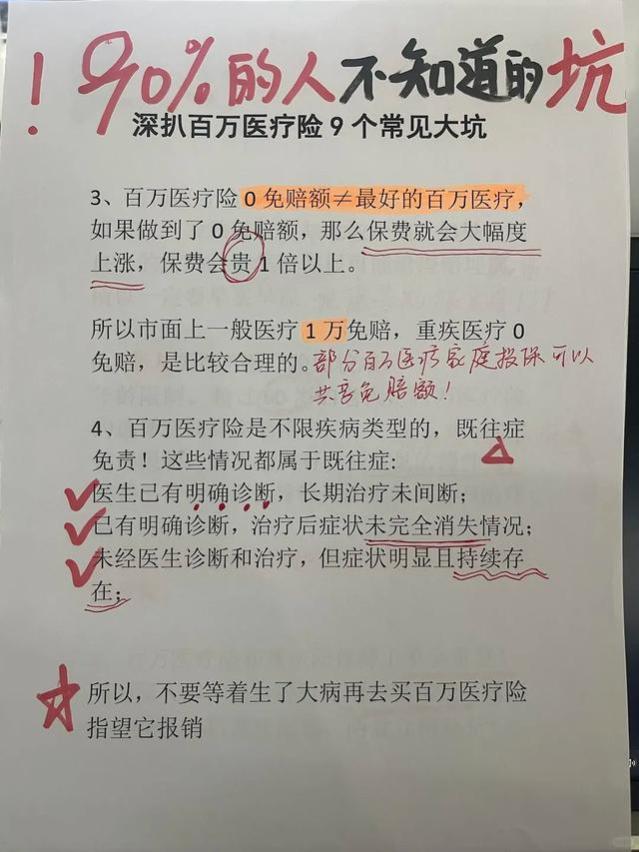 ！90%的人不知道的坑
深扒百万医疗险9个常见大坑
3、百万医疗险0免赔额≠最好的百万医疗，
如果做到了0免赔额，那么保费就会大幅度
上涨，保费会贵1倍以上。
所以市面上一般医疗1万免赔，重疾医疗0
免赔，是比较合理的。部分百万医疗家庭投保可以
共享免赔额！
4、百万医疗险是不限疾病类型的，既往症
免责！这些情况都属于既往症:
医生已有明确诊断，长期治疗未间断；
已有明确诊断，治疗后症状未完全消失情况；
未经医生诊断和治疗，但症状明显且持续存
在；
所以，不要等着生了大病再去买百万医疗险
指望它报销